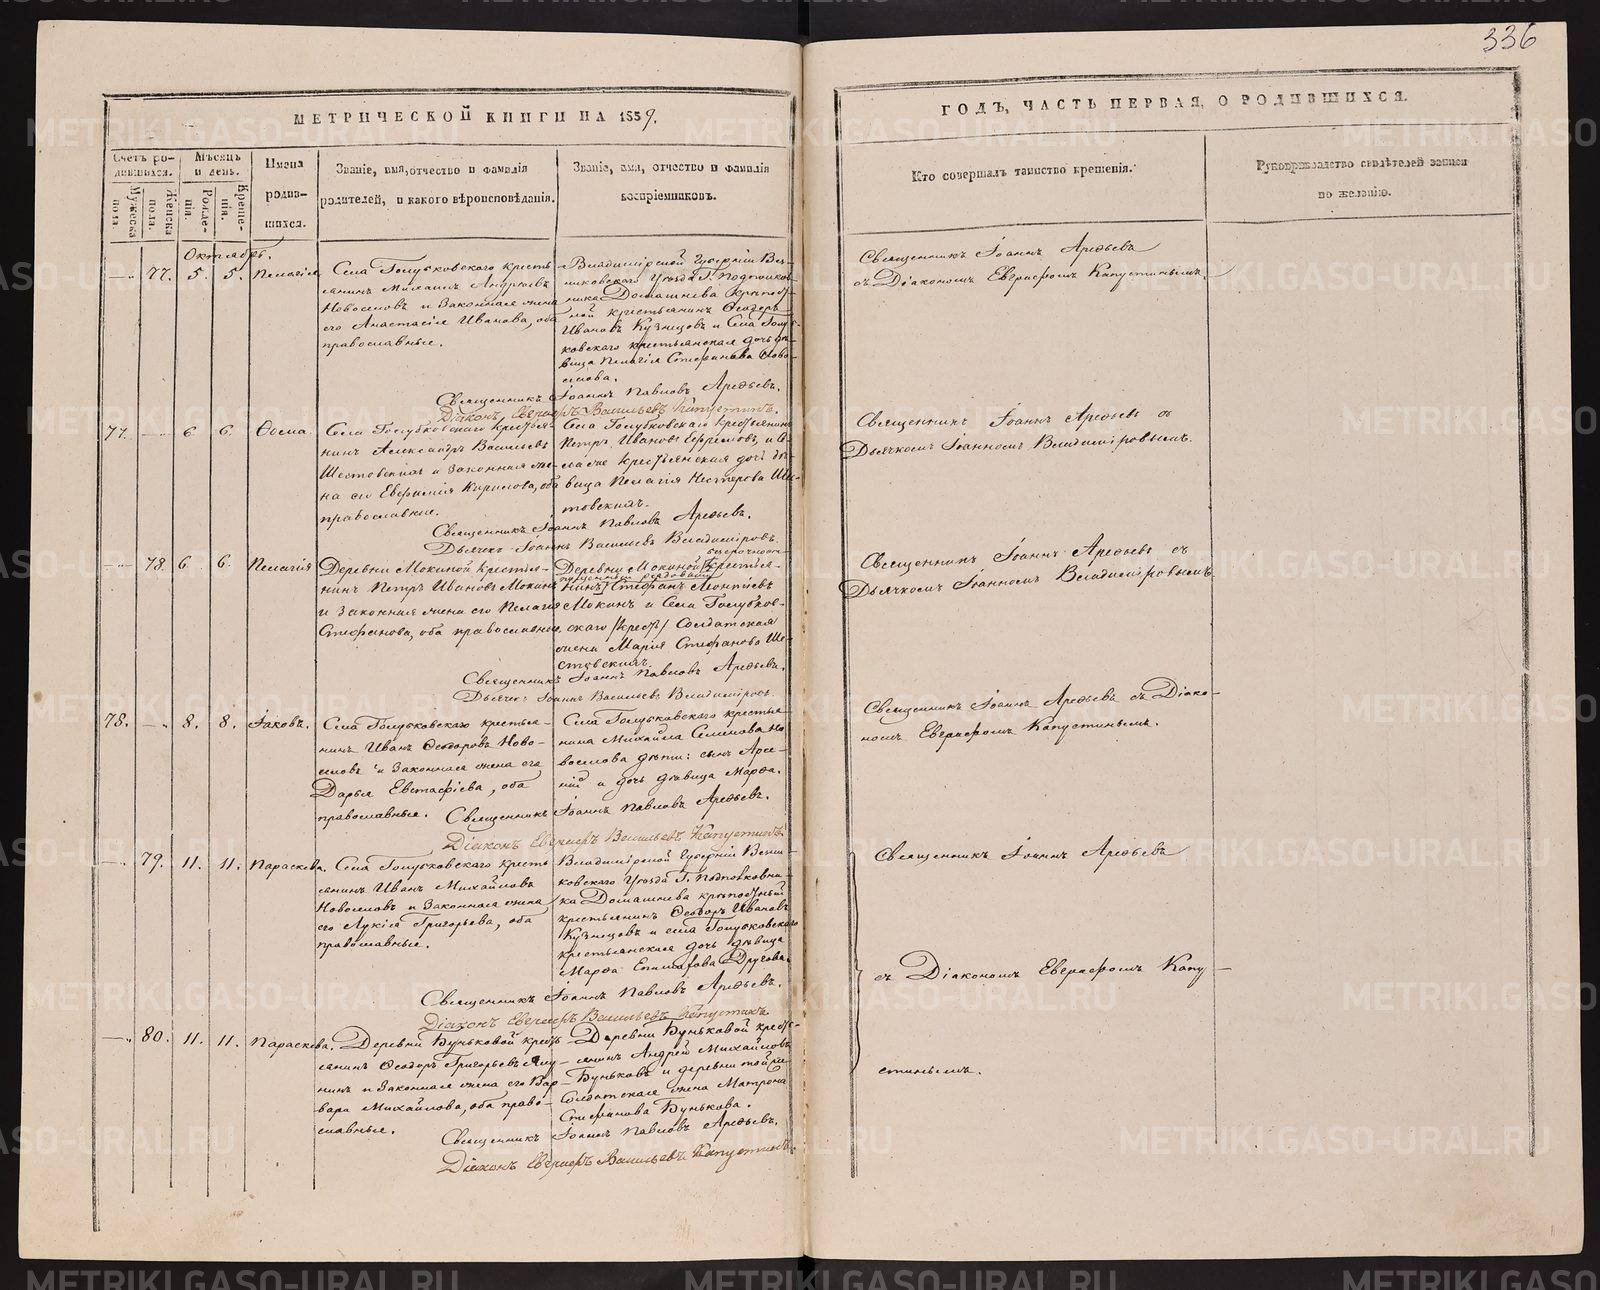 336
МЕТРИЧЕСКОЙ КНИГИ НА 1859.
ГОДЪ, ЧАСТЬ ПЕРВАЯ, О РОДИВШИХСЯ.
Счетъ ро-
дившихся.
Мужеска
пола.
Женска
пола.
Мѣсяцъ
и день.
Рожде-
нія.
Креще-
нія.
Имена
родив-
шихся.
Званіе, имя, отчество и фамилія
родителей, и какого вѣроисповѣданія.
Званіе, имя, отчество и фамилія
воспріемниковъ.
Кто совершалъ таинство крещенія.
Рукоприкладство свидѣтелей записи
по желанію.
Октябрь.
77. 5. 5. Пелагія
Села Голубковскаго кресть
янинъ Михаилъ Андреевъ
Новоселовъ и Законная жена
его Анастасія Иванова, оба
православные.
Владимірской Губерніи Вяз-
никовскаго Уѣзда Г. Подполков-
ника Домашнева крѣпост-
ной крестьянинъ Ѳеодоръ
Ивановъ Кузнецовъ и Села Голуб-
ковскаго крестьянская дочь дѣ-
вица Пелагія Стефанова Ново-
селова.
Священникъ Іоаннъ Павловъ Арефьевъ.
Діаконъ Евграфъ Васильевъ Капустинъ.
Священникъ Іоаннъ Арефьевъ
съ Діакономъ Евграфомъ Капустинымъ.
77. 6 6. Ѳома.
Села Голубковскаго крестья-
нинъ Александръ Васильевъ
Шестовскихъ и Законная же-
на его Евфимія Кирилова, оба
православные.
Села Голубковскаго крестьянинъ
Петръ Ивановъ Ефремовъ, и С-
ела тоже крестьянская дочь дѣ-
вица Пелагія Нестерова Шес-
товскихъ.
Священникъ Іоаннъ Павловъ Арефьевъ.
Дьячекъ Іоаннъ Васильевъ Владиміровъ.
Священникъ Іоаннъ Арефьевъ съ
Дьячкомъ Іоанномъ Владиміровымъ.
78. 6 6. Пелагія
Деревни Мокиной крестья-
нинъ Петръ Ивановъ Мокинъ
и Законная жена его Пелагія
Стефанова, оба православные.
безсрочноот-
Деревни Мокиной /крестья-
пущенный рядовой
нинъ/ Стефанъ Леонтіевъ
Мокинъ и Села Голубков-
скаго /крест/ Солдатская
жена Марія Стефанова Ше-
стовскихъ.
Священникъ Іоаннъ Павловъ Арефьевъ.
Дьячекъ Іоаннъ Васильевъ Владиміровъ.
Священникъ Іоаннъ Арефьевъ съ
Дьячкомъ Іоанномъ Владиміровымъ
78. 8. 8. Іаковъ.
Села Голубковскаго крестья-
нинъ Иванъ Ѳеодоровъ Ново-
селовъ и Законная жена его
Дарья Евстафіева, оба
православные.
Села Голубковскаго крестья-
нина Михайла Семенова Но
воселова дѣти: сынъ Арсе-
ній и дочь дѣвица Марфа.
Священникъ Іоаннъ Павловъ Арефьевъ.
Діаконъ Евграфъ Васильевъ Капустинъ.
Священникъ Іоаннъ Арефьевъ съ Діако-
номъ Евграфомъ Капустинымъ.
79. 11. 11. Параскева.
Села Голубковскаго кресть
янинъ Иванъ Михайловъ
Новоселовъ и Законная жена
его Лукія Григорьева, оба
православные.
Владимірской Губерніи Вязни-
ковскаго Уѣзда Г. Подполковни-
ка Домашнева крѣпостный
крестьянинъ Ѳеодоръ Ивановъ
Кузнецовъ и села Голубковскаго
крестьянская дочь дѣвица
Марфа Епимахова Другова.
Священникъ Іоаннъ Павловъ Арефьевъ.
Діаконъ Евграфъ Васильевъ Капустинъ.
Священникъ Іоаннъ Арефьевъ
съ Діакономъ Евграфомъ Капу-
стинымъ.
80. 11. 11. Параскева.
Деревни Буньковой кресть
янинъ Ѳеодоръ Григорьевъ
нинъ и Законная жена его Вар-
вара Михайлова, оба право-
славные.
Деревни Буньковой кресть-
янинъ Андрей Михайловъ
Буньковъ и деревни той же
Солдатская жена Матрона
Стефанова Бунькова.
Священникъ Іоаннъ Павловъ Арефьевъ.
Діаконъ Евграфъ Васильевъ Капустинъ.
METRIKI.GASO-URAL.RU